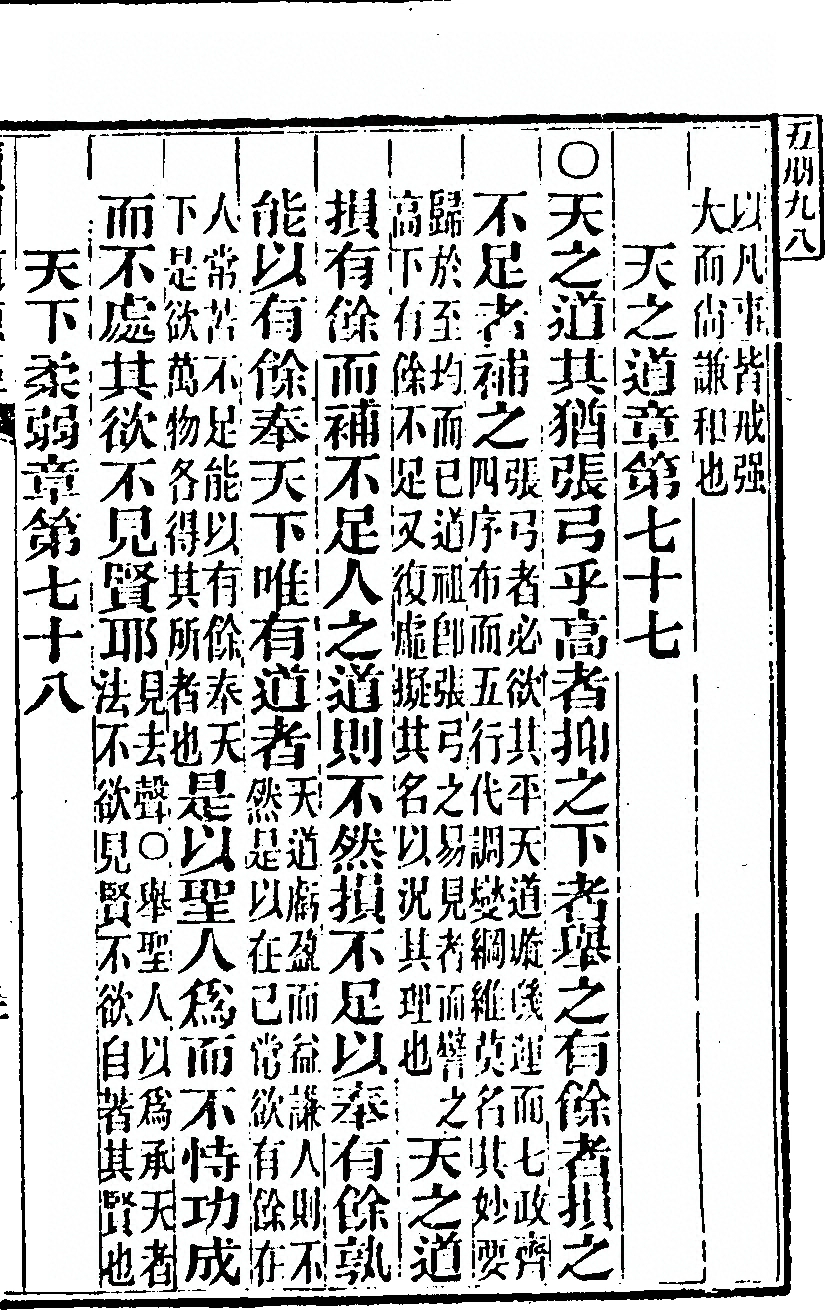 五册九八
以凡事皆戒强
大而尙謙和也
天之道章第七十七
〇天之道其猶張弓乎高者抑之下者舉之有餘者損之
不足者補之張弓者必欲其平天道璇璣運而七政齊
四序布而五行代調變綱維莫名其妙要
歸於至均而已道祖卽張弓之易見者而譬之
高下有餘不足又復虛擬其名以況其理也
天之道
損有餘而補不足人之道則不然損不足以奉有餘孰
能以有餘奉天下唯有道者天道虧盈而益謙人則不
然是以在已常欲有餘在
人常苦不足能以有餘奉天
下是欲萬物各得其所者也
是以聖人爲而不恃功成
而不處其欲不見賢耶見去聲〇舉聖人以爲承天者
法不欲見賢不欲自著其賢也
天下柔弱章第七十八